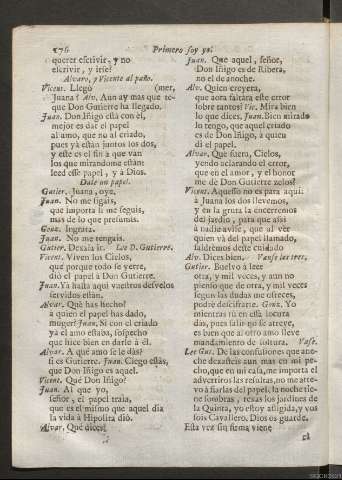 176 Primero soy yo.
querer escrivir, y no
escrivir, y irse?
Alvaro, y Vicente al paño.
Vicent. Llegò (mer,
Juana? Alv. Aun ay mas que te-
que Don Gutierre ha llegado.
Juan. Don Iñigo està con èl,
mejor es dar el papel
al amo, que no al criado,
pues yà estàn juntos los dos,
y este es el fin à que van
los que mirandome estàn:
leed esse papel, y à Dios.
Dale un papel.
Gutier. Juana, oye.
Juan. No me sigais,
que importa si me seguis,
mas de lo que presumis.
Gonz. Ingrata.
Juan. No me tengais.
Gutier. Dexala ir. Lee D. Gutierre.
Vicent. Viven los Cielos,
que porque todo se yerre,
diò el papel à Don Gutierre.
Juan. Yà hasta aqui vuestros desvelos
servidos estàn.
Alvar. Què has hecho?
à quien el papel has dado,
muger? Juan. Si con el criado
yà el amo estaba, sospecho
que hice bien en darle à èl.
Alvar. A què amo se le dàs?
si es Gutierre. Juan. Ciego estàs,
que Don Iñigo es aquel.
Vicent. Què Don Iñigo?
Juan. Al que yo,
señor, el papel traia,
que es el mismo que aquel dia
la vida à Hipolita diò.
Alvar. Què dices?
Juan. Que aquel, señor,
Don Iñigo es de Ribera,
no el de anoche.
Alv. Quien creyera,
que aora faltàra este error
sobre tantos! Vic. Mira bien
lo que dices. Juan. Bien mirado
lo tengo, que aquel criado
es de Don Iñigo, à quien
di el papel.
Alvar. Que fuera, Cielos,
yendo aclarando el error,
que en el amor, y el honor
me dè Don Gutierre zelos!
Vicent. Aquesso no es para aqui:
à Juana los dos llevemos,
y en la gruta la encerremos
del jardin, para que assi
à nadie avise, que al vèr
quien và del papel llamado,
saldremos deste cuidado
Alv. Dices bien. Vanse los tres.
Gutier. Buelvo à leer
otra, y mil veces, y aun no
pienso que de otra, y mil veces
segun las dudas me ofreces,
podrè descifrarte. Gonz. Yo
mientras tù en essa locura
dàs, pues salir no se atreve,
es bien que al otro amo lleve
mandamiento de soltura. Vase.
Lee Gut. De las confusiones que ano-
che dexasteis aun mas en mi pe-
cho, que en mi casa, me importa el
advertiros las resultas, no me atre-
vo à fiarlas del papel, la noche tie-
ne sombras, rexas los jardines de
la Quinta, yo estoy afligida, y vos
sois Cavallero. Dios os guarde.
Esta vez su firma viene